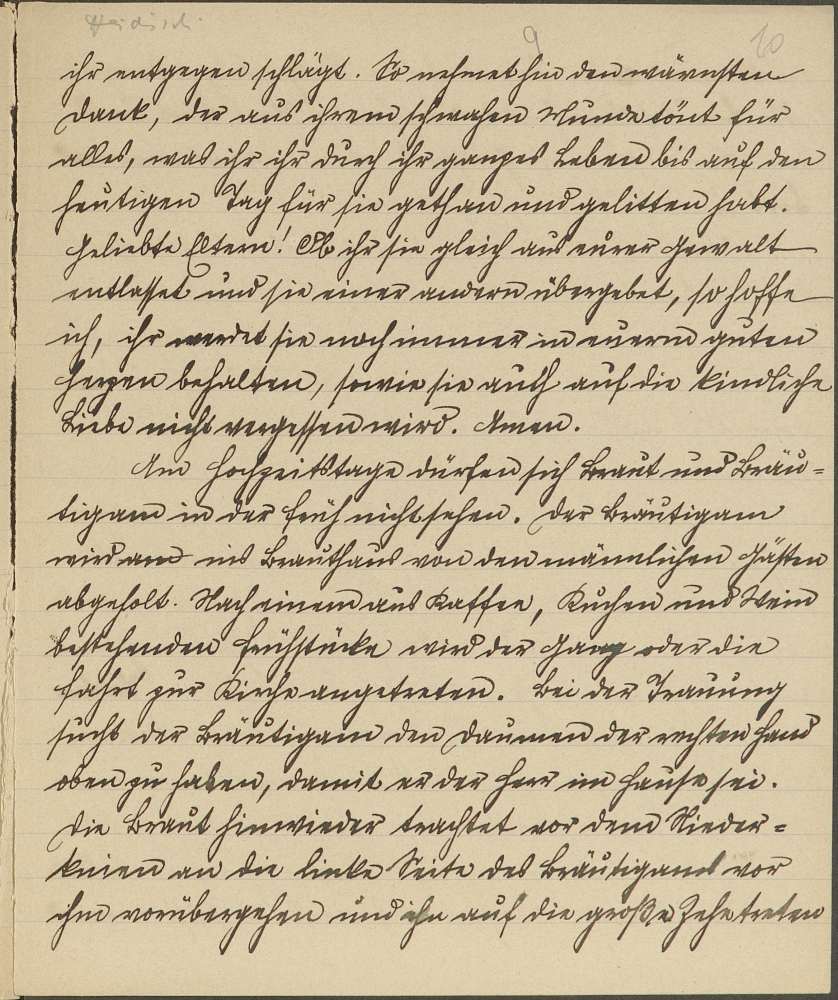 9 10
ihr entgegen schlägt. So nehmet hin den wärmsten
Dank, der aus ihrem schwachen Munde tönt für
alles, was ihr ihr durch ihr ganzes Leben bis auf den
heutigen Tag für sie gethan und gelitten habt.
Geliebte Eltern! Ob ihr sie gleich aus eurer Gewalt
entlasset und sie einer andern übergebet, so hoffe
ich, ihr werdet sie noch immer in euerm guten
Herzen behalten, sowie sie auch auf die kindliche
Liebe nicht vergessen wird. Amen.
Am Hochzeitstage dürfen sich Braut und Bräu-
tigam in der Früh nicht sehen. Der Bräutigam
wird ins Brauthaus von den männlichen Gästen
abgeholt. Nach einem aus Kaffee, Kuchen und Wein
bestehenden Frühstücke wird der Gang oder die
Fahrt zur Kirche angetreten. Bei der Trauung
sucht der Bräutigam den Daumen der rechten Hand
oben zu haben, damit er der Herr im Hause sei.
Die Braut hinwieder trachtet vor dem Nieder-
knien an die linke Seite des Bräutigams vor
ihm vorübergehen und ihn auf die große Zehe treten